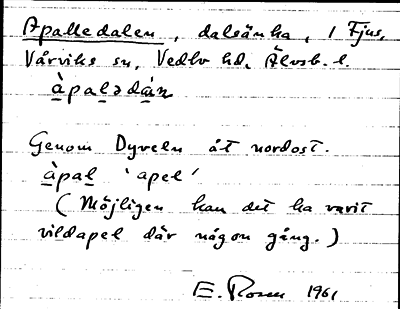 Apalledalen, dalsänka, i Fjus,
Vårviks sn, Vedbo hd. Älvsb. l.
àpalədán
Genom Dyveln åt nordost.
àpal 'apel'
(Möjligen kan det ha varit
vildapel där någon gång.)
E. Rosén 1961